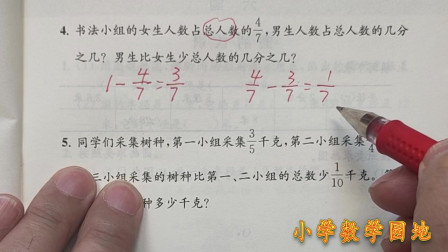 4. 书法小组的女生人数占总人数的4/7,男生人数占总人数的几分
之几?男生比女生少总人数的几分之几?
1-4/7=3/7 4/7-3/7=1/7
5. 同学们采集树种,第一小组采集3/5千克,第二小组采集 /4
三小组采集的树种比第一、二小组的总数少1/10千克。
种多少千克?
小学数学园地